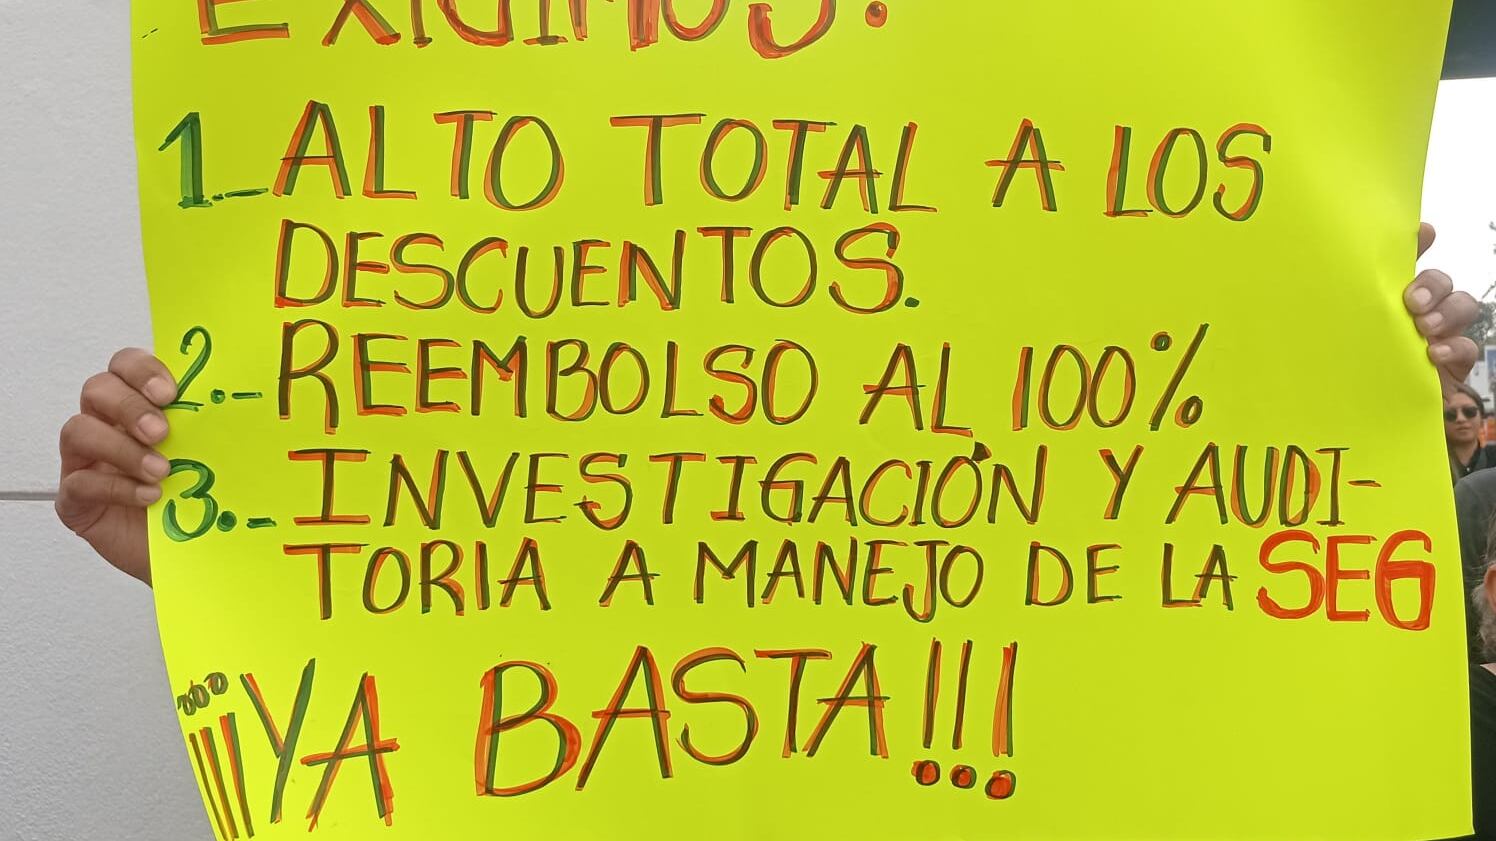 EXIGIMOS:
1.- ALTO TOTAL A LOS
DESCUENTOS.
2.- REEMBOLSO AL 100%
3.- INVESTIGACIÓN Y AUDI-
TORIA A MANEJO DE LA SEG
¡¡¡YA BASTA!!!